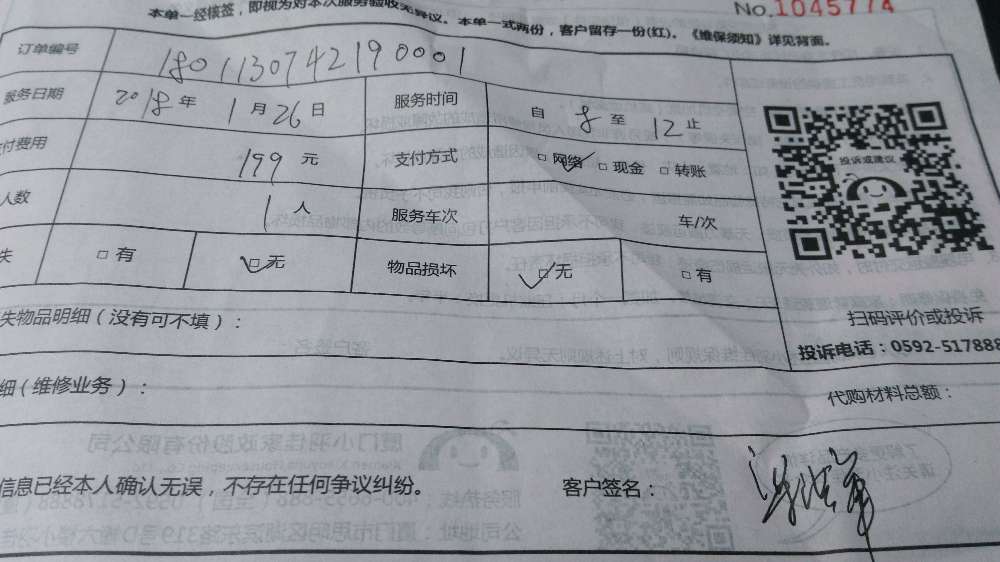 No.1045774
本单一经核签，即视为对本次服务验收无异议。本单一式两份，客户留存一份(红)。《维保须知》详见背面。
订单编号 18011307421900001
服务日期 2018年 1月26日 服务时间 自 8 至 12 止
付费用 199 元 支付方式 □网络 □现金 □转账
人数 1 人 服务车次 车/次
失 □有 □无 物品损坏 □无 □有
投诉或建议
失物品明细（没有可不填）：
扫码评价或投诉
投诉电话：0592-517888
细（维修业务）：
代购材料总额：
信息已经本人确认无误，不存在任何争议纠纷。 客户签名：